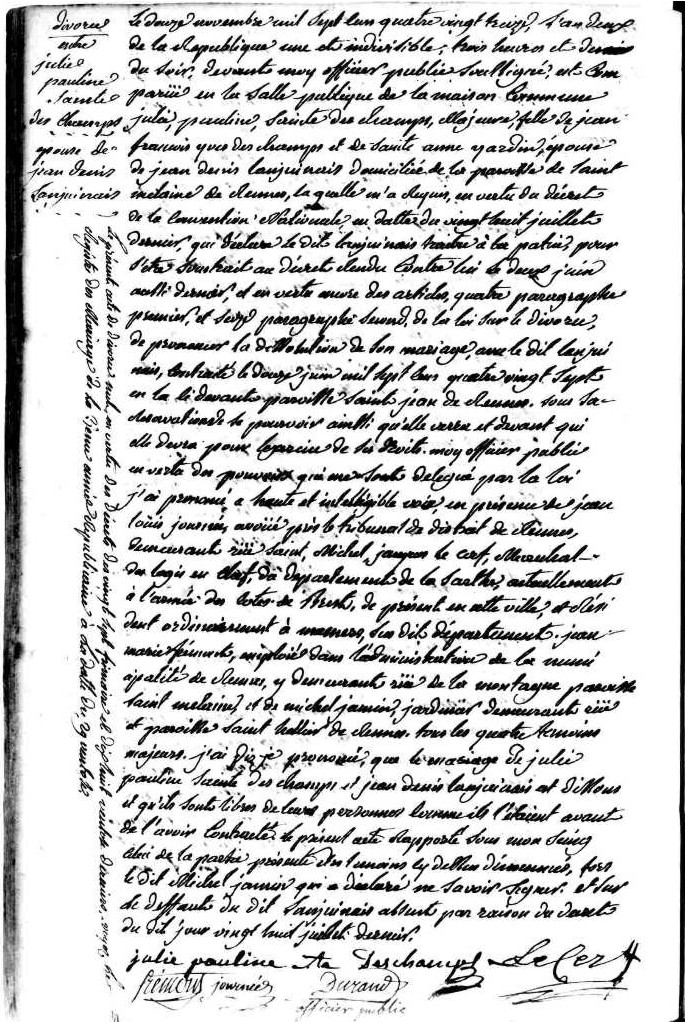 divorce
entre
julie
pauline
Sainte
des Champs
epouse de
jean denis
Lanjuinais
Le douze novembre mil sept cens quatre vingt treize, l'an deux
de la Republique une et indivisible, trois heures et demie
du soir, devant moy officier public soussigné, est com
parüe en la salle publique de la maison Commune
julie, pauline, Sainte des champs, Majeure, fille de jean
francois yves des champs et de Sainte anne jardin, épouse
de jean denis Lanjuinais domiciliée de la paroisse de Saint
melaine de Rennes, la quelle m'a Requis, en vertu du décret
de la Convention Nationale en datte du vingt huit juillet
dernier, qui declare le dit Lanjuinais traitre à la patrie, pour
s'être soustrait au décret rendu Contre lui le deux juin
aussi dernier, et en vertu encore des articles, quatre paragraphe
premier, et seize paragraphe second, de la loi sur le divorce,
de prononcer la dissolution de son mariage, avec le dit Lanjui
nais, Contracté le douze juin mil sept cens quatre vingt sept
en la ci devant paroisse Saint jean de Rennes. sous la
de se pourvoir ainsi qu'elle verra et devant qui
elle devra pour l'exercice de ses droits. moy officier public
en vertu des pouvoirs qui me sont delegué par la loi
j'ai prononcé a haute et intelligible voix, en présence de jean
Loüis journée, avoüé près le tribunal de district de Rennes,
demeurant rüe Saint Michel, jacques le cerf, Marechal
des logis en chef, du département de la Sarthe, actuellement
à l'armée des Cotes de Brest, de présent en cette ville, et Rési
dent ordinairement à mamers, sus dit département. jean
marie frémont, emploié dans l'administration de la muni
cipalité de Rennes, y demeurant rüe de la montagne paroisse
Saint melaine, et de michel jamin, jardinier demeurant rüe
et paroisse Saint hellier de Rennes. tous les quatre temoins
majeurs. j'ai dis je prononcé, que le mariage de julie
pauline Sainte des champs et jean denis Lanjuinais est dissous
et qu'ils sont libres de leurs personnes comme ils l'étaient avant
de l'avoir Contracté. le présent acte Rapporté sous mon seing
celui de la partie présente et des temoins cy dessus dénommés, fors
le dit Michel jamin qui a déclaré ne savoir signer. et sur
le deffaut du dit Lanjuinais absent par raison du decret
du dit jour vingt huit juillet dernier.
julie pauline Ste Deschamps Le Cerf
frémont journée Durand
officier public
Le présent acte de divorce nul, en vertu des décrets des vingt sept frimaire et dix huit ventose derniers,
Registre des Mariages de la 3eme année Républicaine à la datte du 29 ventose